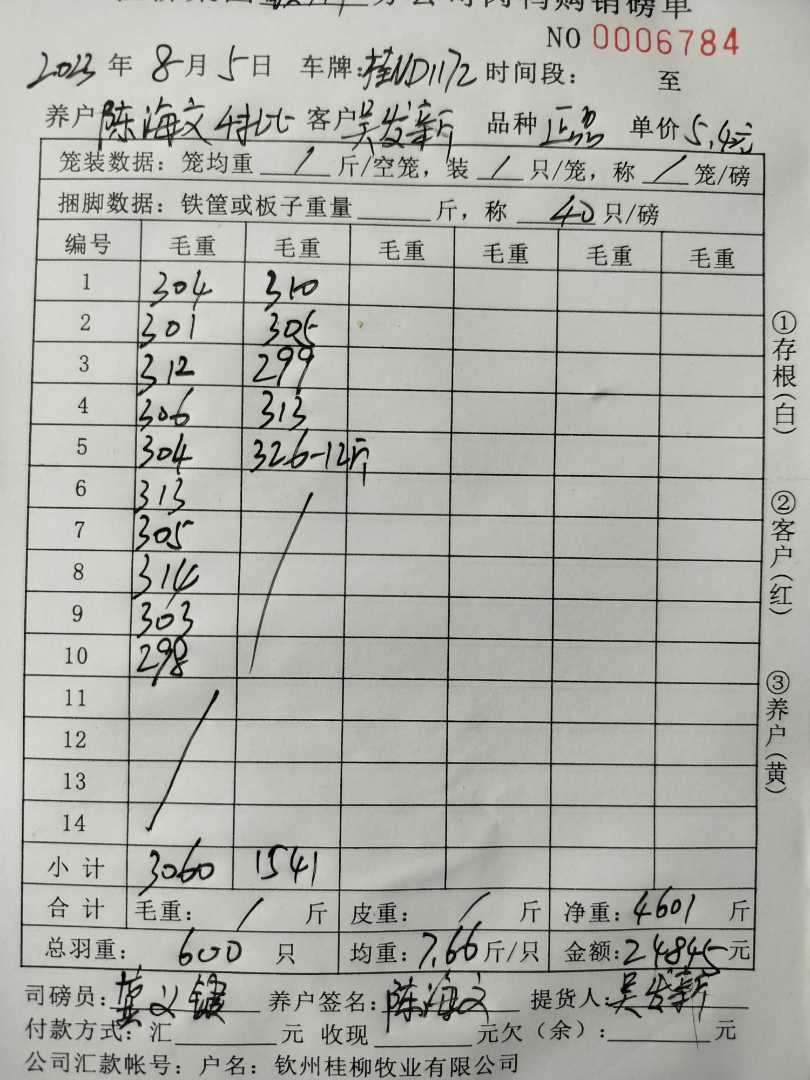 分公司肉鸭购销磅单
NO 0006784
2023年 8月 5日 车牌：桂ND1172 时间段： 至
养户 陈海文 特比 客户 吴发新 品种 正品 单价 5.4元
笼装数据：笼均重 / 斤/空笼，装 / 只/笼，称 / 笼/磅
捆脚数据：铁筐或板子重量 斤，称 40 只/磅
编号 毛重 毛重 毛重 毛重 毛重 毛重
1 304 310
2 301 305
3 312 299
4 306 313
5 304 326-12斤
6 313
7 305
8 314
9 303
10 298
11
12
13
14
小计 3060 1541
合计 毛重： / 斤 皮重： / 斤 净重：4601 斤
总羽重： 600 只 均重：7.66 斤/只 金额：24845元
司磅员： 养户签名：陈海文 提货人：吴发新
付款方式：汇 元 收现 元欠（余）： 元
公司汇款帐号：户名：钦州桂柳牧业有限公司
①存根（白）
②客户（红）
③养户（黄）